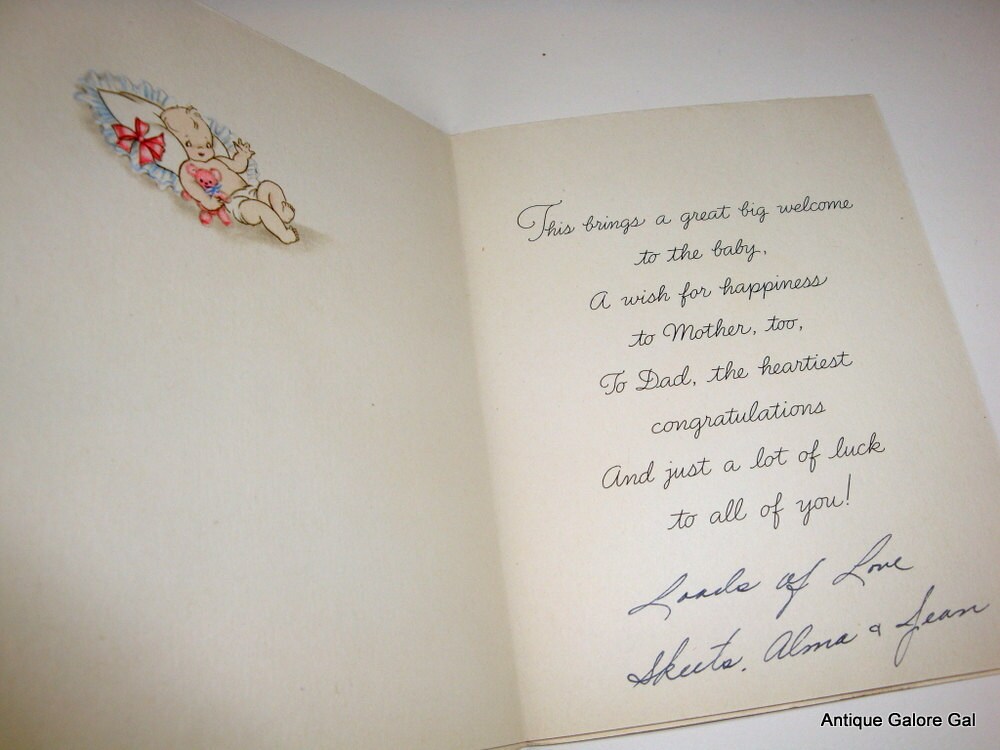 This brings a great big welcome
to the baby,
A wish for happiness
to Mother, too,
To Dad, the heartiest
congratulations
And just a lot of luck
to all of you!
Loads of Love
Skeets, Alma & Jean
Antique Galore Gal